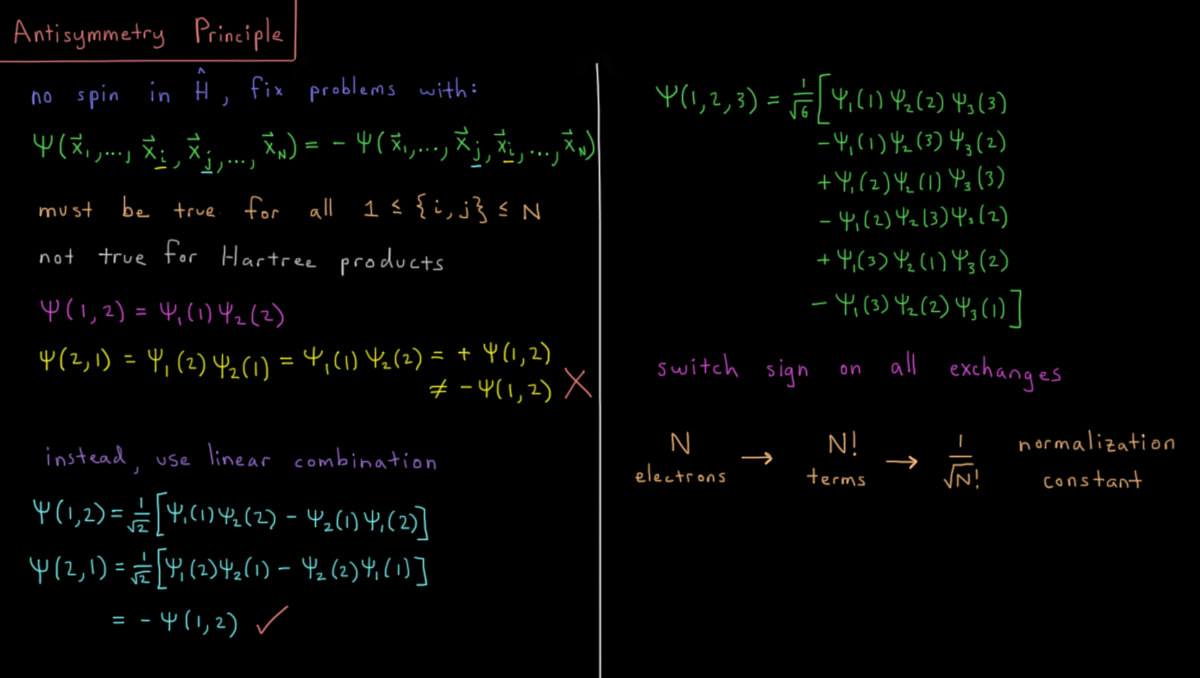 Antisymmetry Principle
no spin in Ĥ, fix problems with:
Ψ(x⃗₁,..., x⃗ᵢ, x⃗ⱼ,..., x⃗_N) = - Ψ(x⃗₁,..., x⃗ⱼ, x⃗ᵢ,..., x⃗_N)
must be true for all 1 ≤ {i,j} ≤ N
not true for Hartree products
Ψ(1,2) = Ψ₁(1)Ψ₂(2)
Ψ(2,1) = Ψ₁(2)Ψ₂(1) = Ψ₁(1)Ψ₂(2) = + Ψ(1,2)
≠ -Ψ(1,2) X
instead, use linear combination
Ψ(1,2) = 1/√2 [Ψ₁(1)Ψ₂(2) - Ψ₂(1)Ψ₁(2)]
Ψ(2,1) = 1/√2 [Ψ₁(2)Ψ₂(1) - Ψ₂(2)Ψ₁(1)]
= - Ψ(1,2) ✓
Ψ(1,2,3) = 1/√6 [Ψ₁(1)Ψ₂(2)Ψ₃(3)
-Ψ₁(1)Ψ₂(3)Ψ₃(2)
+Ψ₁(2)Ψ₂(1)Ψ₃(3)
-Ψ₁(2)Ψ₂(3)Ψ₃(2)
+Ψ₁(3)Ψ₂(1)Ψ₃(2)
-Ψ₁(3)Ψ₂(2)Ψ₃(1)]
switch sign on all exchanges
N electrons → N! terms → 1/√N! normalization constant